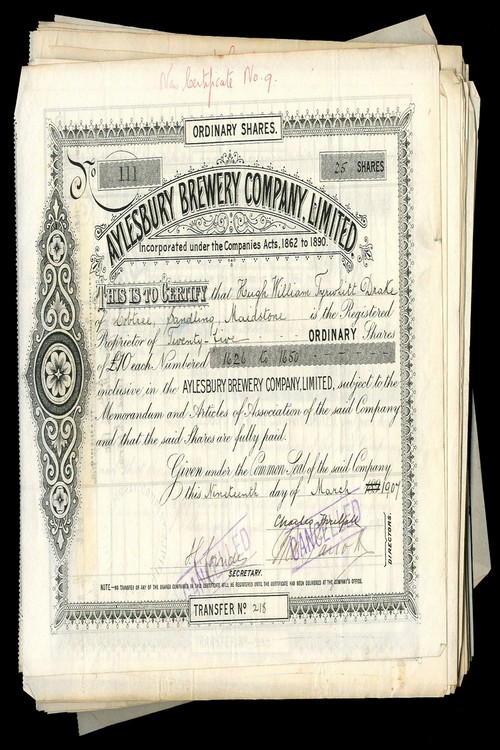 New Certificate No. 9.
ORDINARY SHARES.
No 111
25 SHARES
AYLESBURY BREWERY COMPANY, LIMITED.
Incorporated under the Companies Acts, 1862 to 1890.
THIS IS TO CERTIFY that Hugh William Tyrwhitt Drake
of Cobtree, Sandling, Maidstone is the Registered
Proprietor of Twenty-five ORDINARY Shares
of £10 each Numbered 1626 to 1650
inclusive in the AYLESBURY BREWERY COMPANY, LIMITED, subject to the
Memorandum and Articles of Association of the said Company
and that the said Shares are fully paid.
Given under the Common Seal of the said Company
this Nineteenth day of March 1907
Charles Threlfall
CANCELLED
CANCELLED
DIRECTORS.
SECRETARY.
NOTE.—NO TRANSFER OF ANY OF THE SHARES COMPRISED IN THIS CERTIFICATE WILL BE REGISTERED UNTIL THE CERTIFICATE HAS BEEN DELIVERED AT THE COMPANY'S OFFICE.
TRANSFER No 218